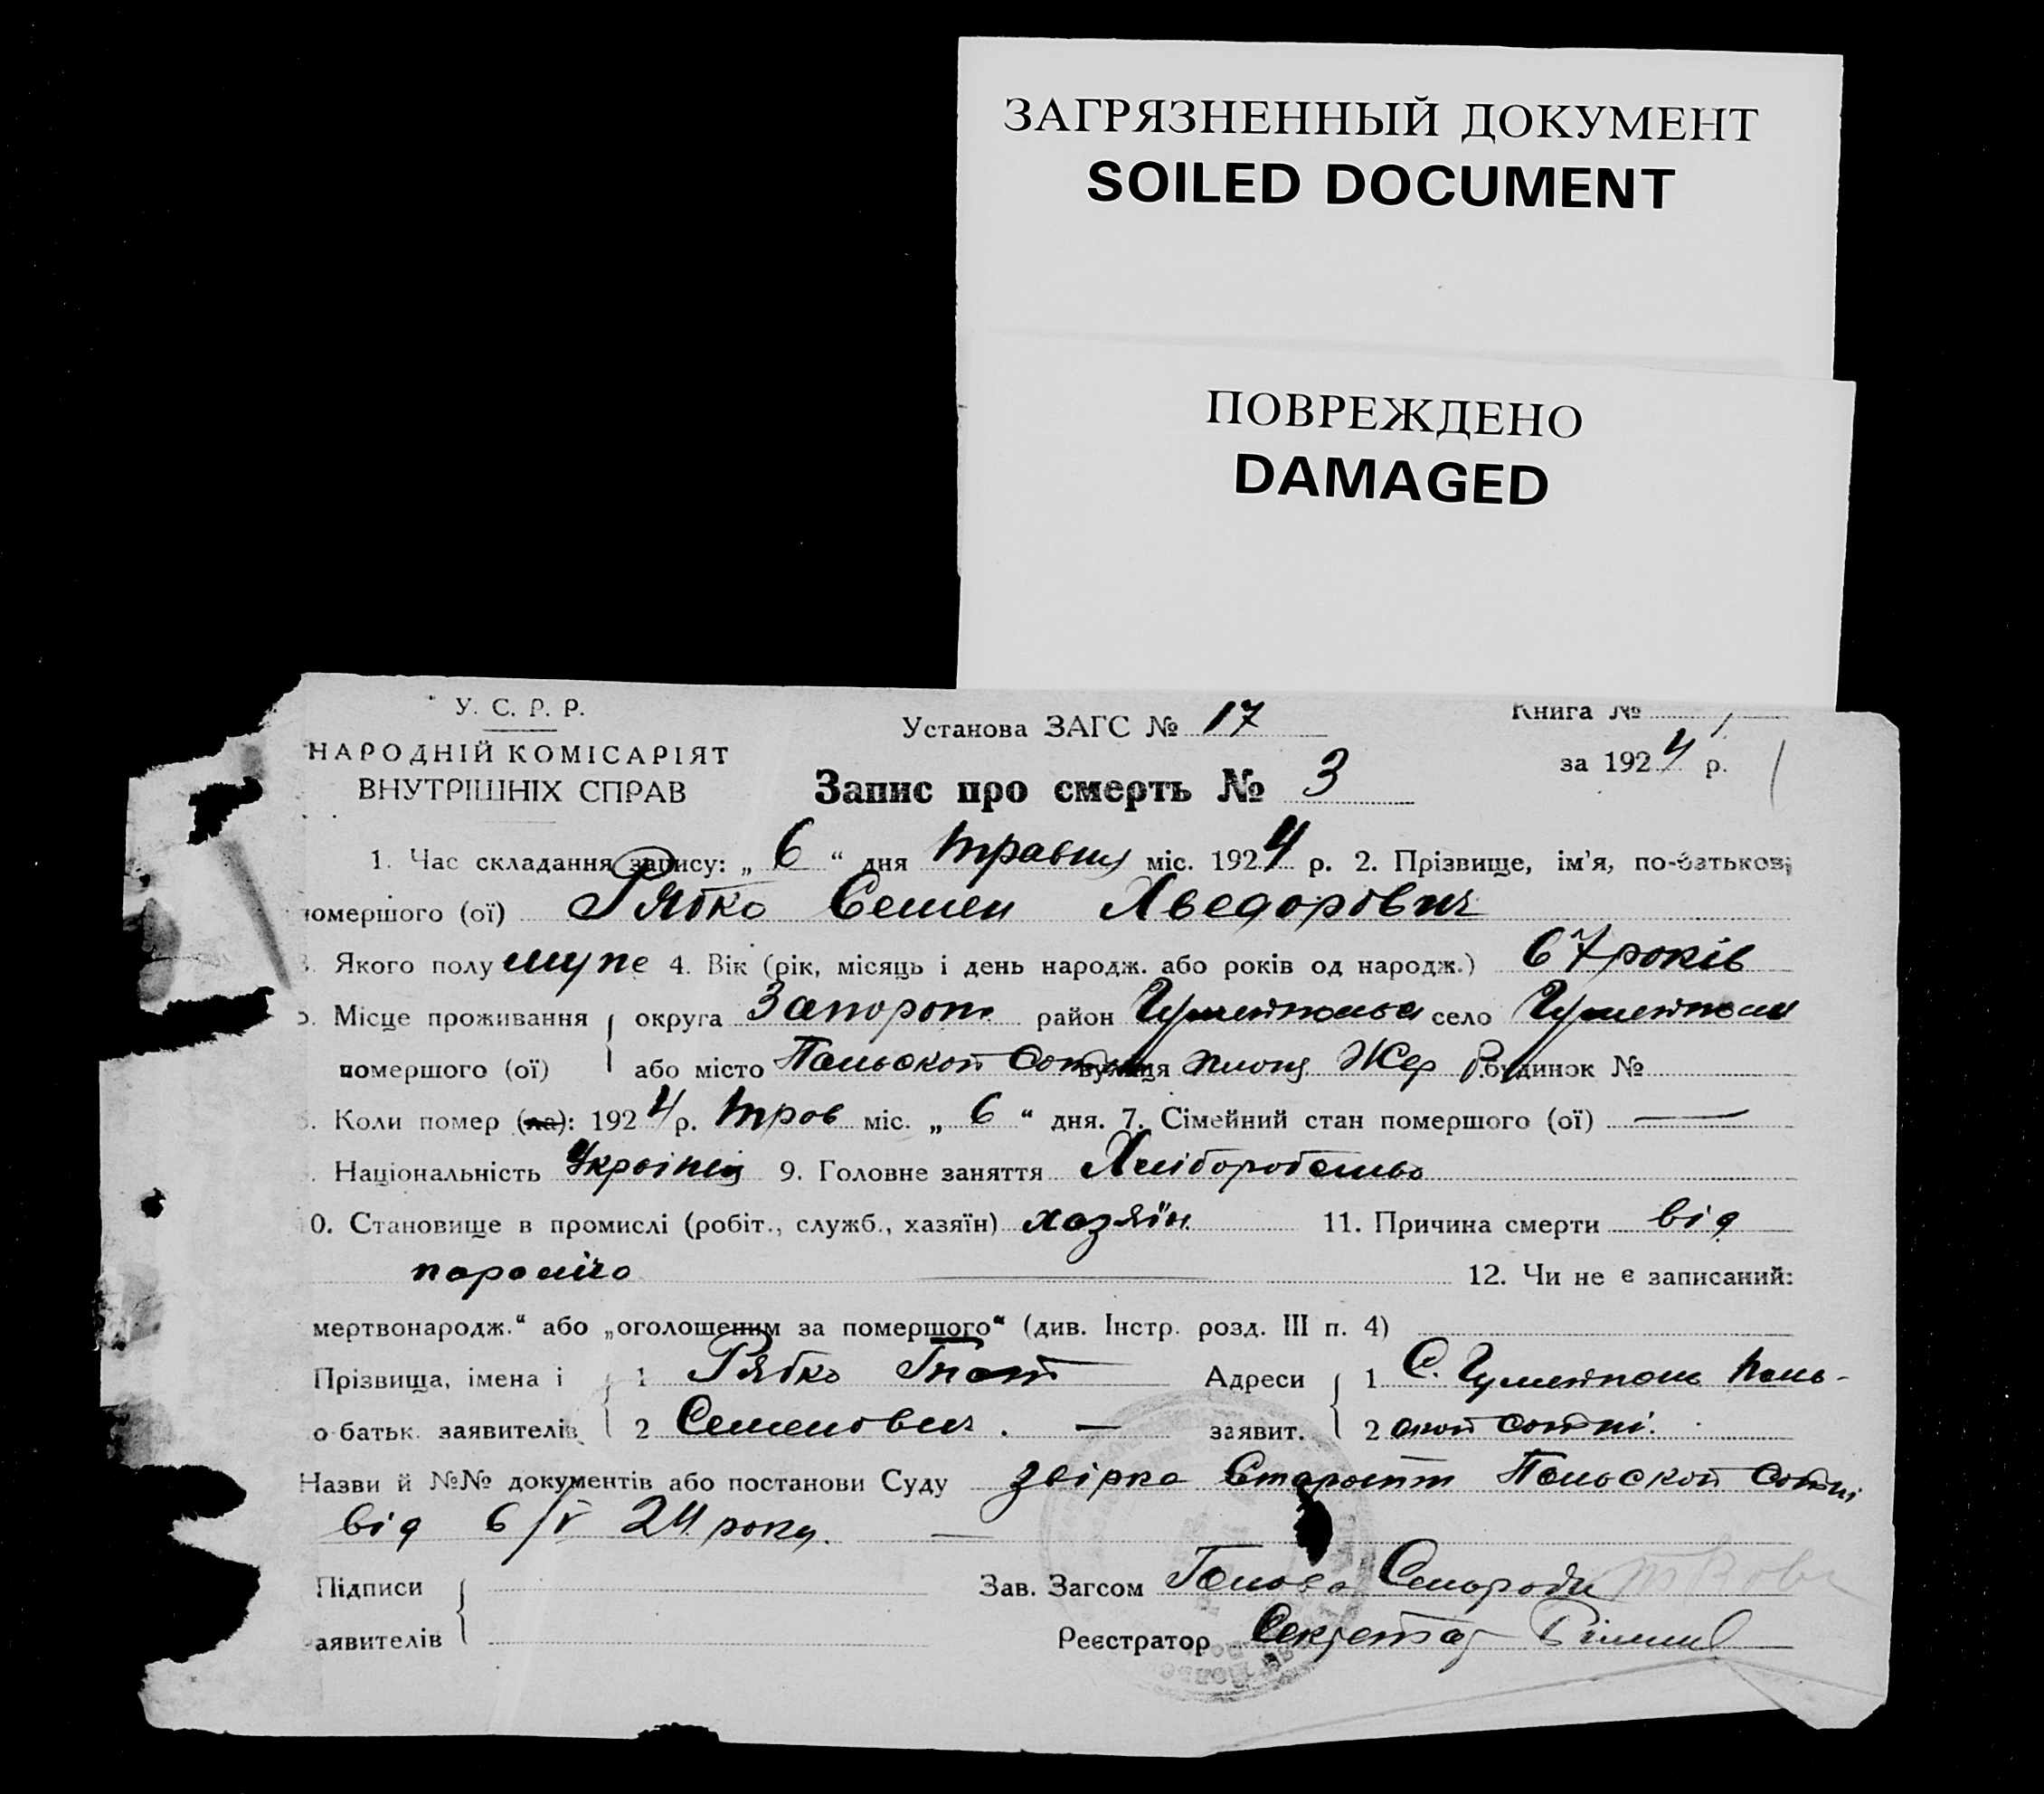 ЗАГРЯЗНЕННЫЙ ДОКУМЕНТ
SOILED DOCUMENT
ПОВРЕЖДЕНО
DAMAGED
У. С. Р. Р.
НАРОДНІЙ КОМІСАРІЯТ
ВНУТРІШНІХ СПРАВ
Установа ЗАГС № 17
Книга № 1
за 1924 р.
Запис про смерть № 3
1. Час складання запису: „ 6 “ дня травня міс. 1924 р. 2. Прізвище, ім'я, по-батькові
помершого (ої) Рябко Семен Хведорович
Якого полу муже 4. Вік (рік, місяць і день народж. або років од народж.) 67 років
Місце проживання округа Запорож район Гуляйпольск село Гуляйполе
помершого (ої) або місто Польской Сотні вулиця будинок №
Коли помер (ла): 1924 р. трав міс. „ 6 “ дня. 7. Сімейний стан помершого (ої) —
Національність Українец 9. Головне заняття Хліборобство
10. Становище в промислі (робіт., служб., хазяїн) хазяїн 11. Причина смерти від
параліча 12. Чи не є записаний:
мертвонародж.“ або „оголошеним за помершого“ (див. Інстр. розд. III п. 4)
Прізвища, імена і 1 Рябко Гнат Адреси 1 С. Гуляйполе Поль-
о батьк. заявителів 2 Семенович. — заявит. 2 ской сотні.
Назви й №№ документів або постанови Суду Польской Сотні
від 6/V 24 року. —
Підписи
заявителів
Зав. Загсом Голова
Реєстратор Секретар